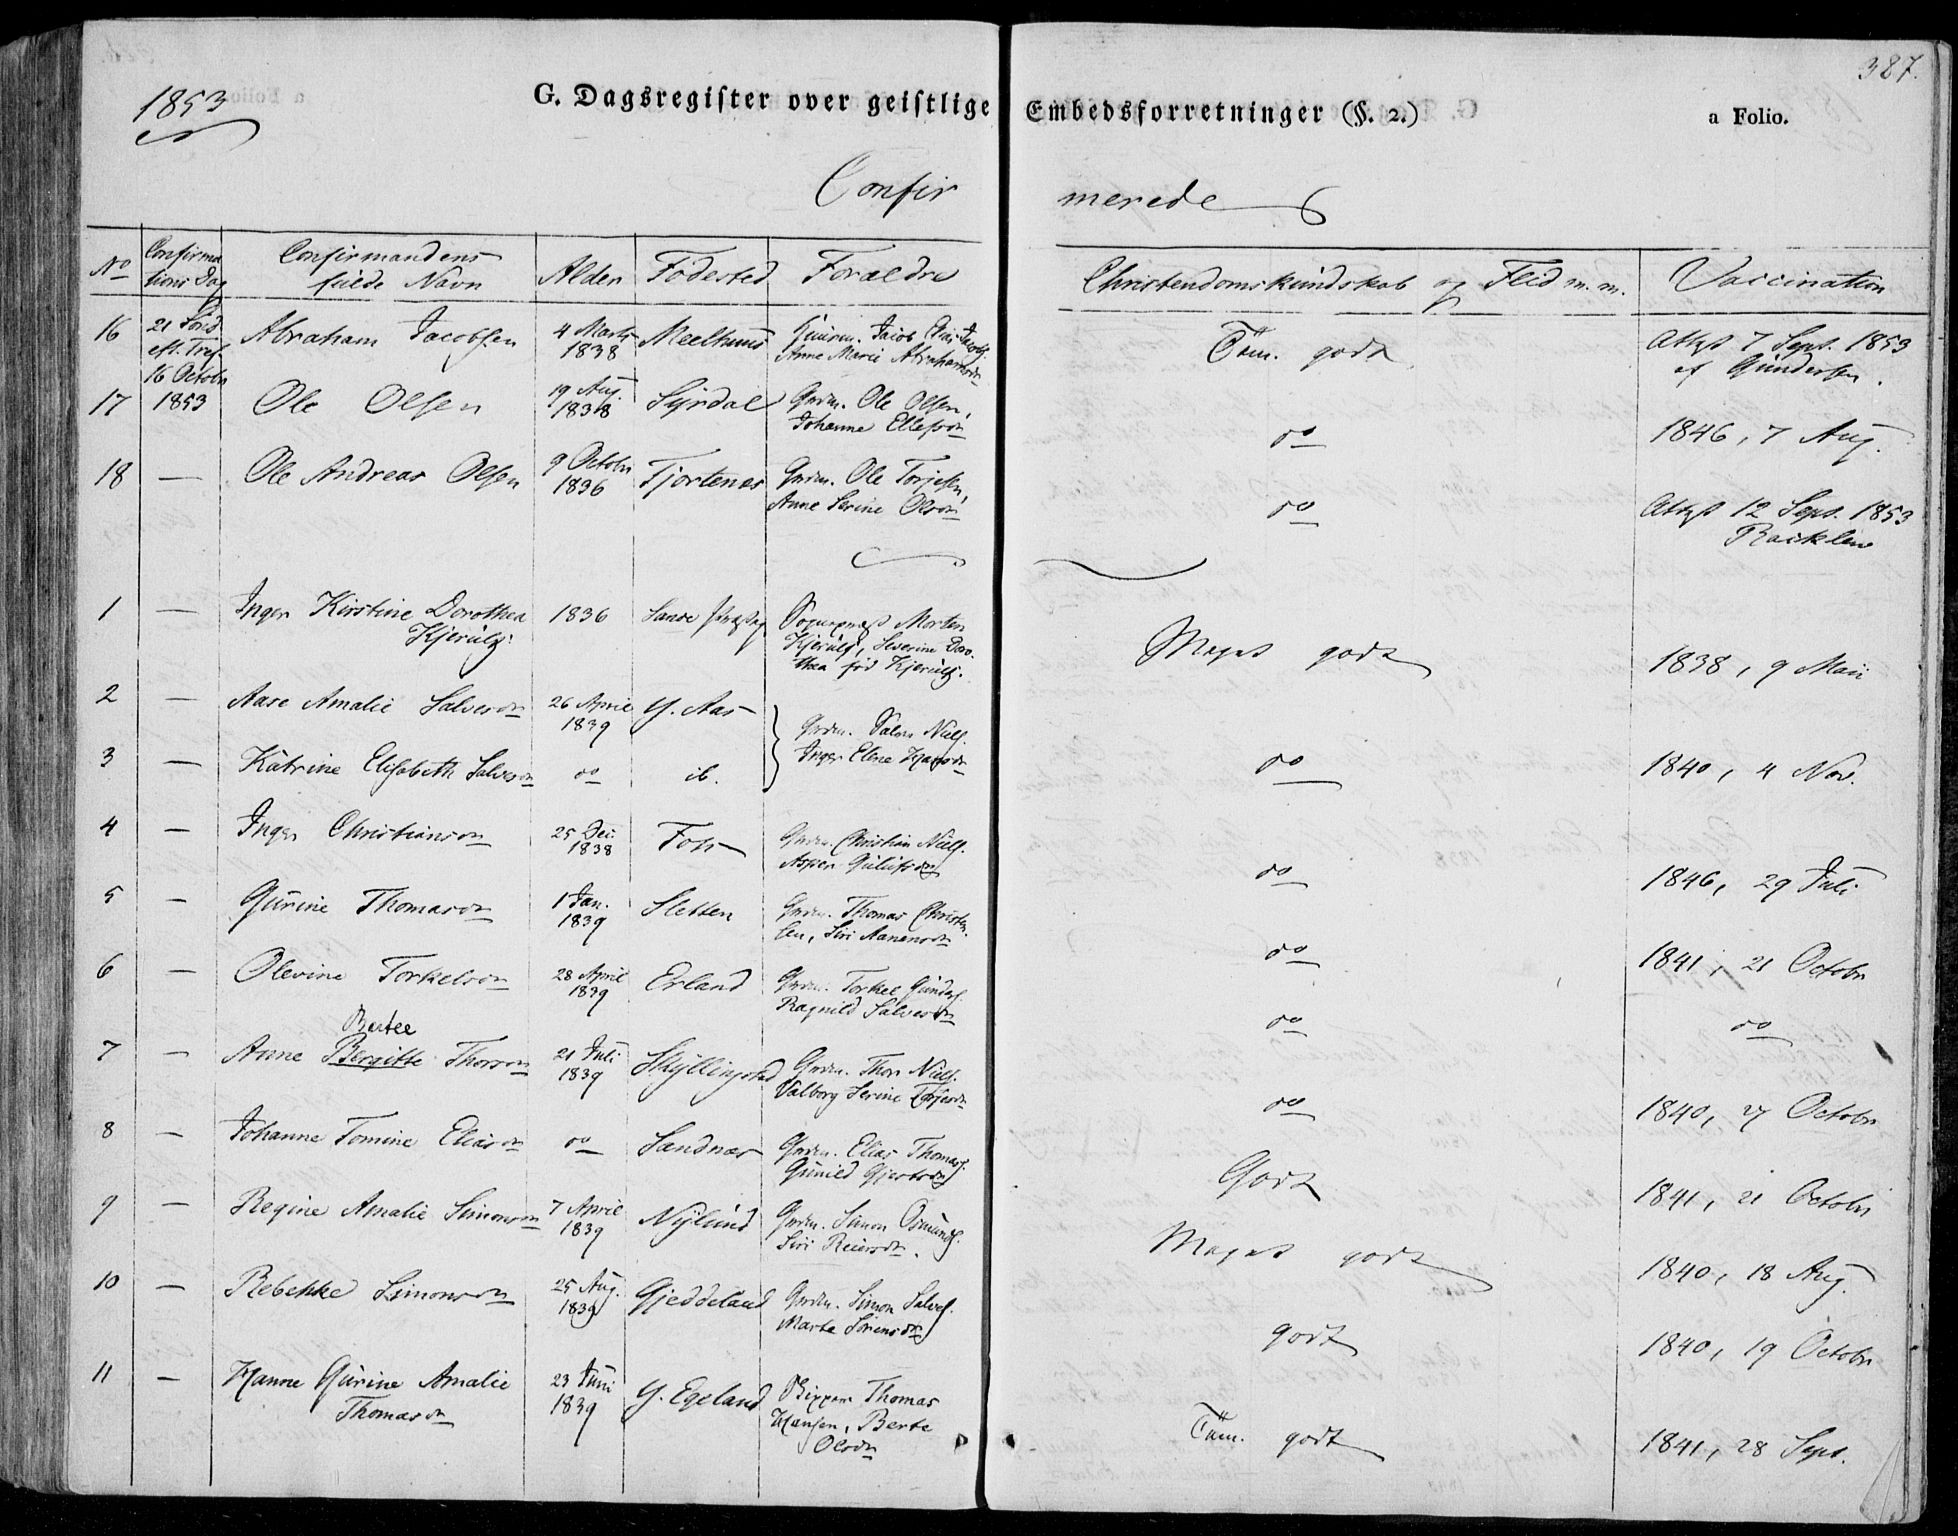 387.
1853
G. Dagsregister over geistlige Embedsforretninger (§. 2.)
a Folio.
Confirmerede
No
Confirmations Dag
Confirmandens fulde Navn
Alder
Fødested
Forældre
Christendomskundskab og Flid m.m.
Vaccination
16 21 Sønd. eft. Tref. Abraham Jacobsen 4 Marts 1838 Meelhuus Jacob Elias Jacobs. Anne Marie Abrahamsdr Tem. godt Attest 7 Sept. 1853 af Gundersen.
16 Octobr
17 1853 Ole Olsen 19 Aug. 1838 Syrdal Grdm. Ole Olsen, Johanne Ellefsdr do 1846, 7 Aug.
18 — Ole Andreas Olsen 9 Octobr 1836 Fjortenæs Grdm. Ole Torjesen, Anne Serine Olsdr do Attest 12 Sept. 1853
1 — Inger Kirstine Dorothea Kjerulf. 1836 Sande Sognepræst Morten Kjerulf, Severine Dorothea fød Kjerulf. Meget godt 1838, 9 Mai
2 — Aase Amalie Salvesdr 26 April 1839 Y. Aas
3 — Katrine Elisabeth Salvesdr do ib. } Grdm. Salve Niels. Inger Elene Hansdr do 1840, 4 Nov.
4 — Inger Christiansdr 25 Dec. 1838 Foss Grdm. Christian Niels. Asper Gulufsdr do 1846, 29 Juli
5 — Gurine Thomasdr 1 Jan. 1839 Sletten Grdm. Thomas Christensen, Siri Aanensdr do 1841, 21 Octobr
6 — Olevine Torkelsdr 28 April 1839 Erland Grdm. Torkel Gunders. Ragnild Salvesdr do do
Bertee
7 — Anne Bergitte Thorsdr 21 Juli 1839 Skyllingstad Grdm. Thor Niels. Valborg Serine Torjesdr do 1840, 27 Octobr
8 — Johanne Tomine Eliasdr do Sandnæs Grdm. Elias Thomas. Gunild Gjertsdr Godt 1841, 21 Octobr
9 — Regine Amalie Simonsdr 7 April 1839 Nylund Grdm. Simon Osmunds. Siri Reiersdr. Meget godt 1840, 18 Aug.
10 — Rebekke Simonsdr 25 Aug. 1839 Gjeddeland Grdm. Simon Salves. Marte Sørensdr godt 1840, 19 Octobr
11 — Hanne Gurine Amalie Thomasdr 23 Juni 1839 Y. Egeland Skipper Thomas Hansen, Berte Olsdr Tem. godt 1841, 28 Sept.